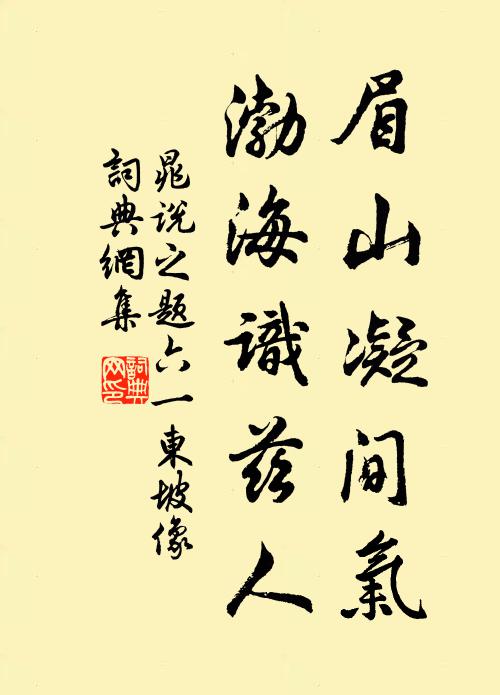 眉山凝間氣
渤海識茲人
晁說之題六一東坡像
詞典網集
詞典網印